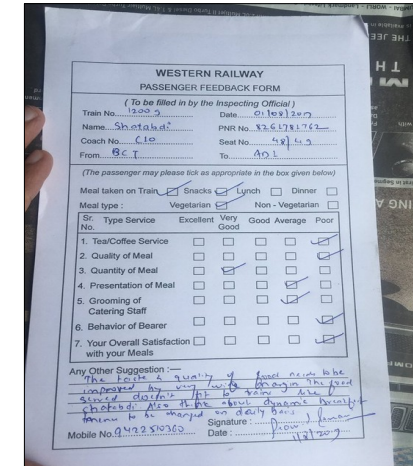 WESTERN RAILWAY
PASSENGER FEEDBACK FORM
( To be filled in by the Inspecting Official )
Train No. 12009 Date 01/08/2017
Name Shatabdi PNR No. 8261781762
Coach No. C10 Seat No. 48/49
From BCT To ADI
(The passenger may please tick as appropriate in the box given below)
Meal taken on Train Snacks Lunch Dinner
Meal type : Vegetarian Non - Vegetarian
Sr. No. Type Service Excellent Very Good Good Average Poor
1. Tea/Coffee Service
2. Quality of Meal
3. Quantity of Meal
4. Presentation of Meal
5. Grooming of
Catering Staff
6. Behavior of Bearer
7. Your Overall Satisfaction
with your Meals
Any Other Suggestion :—
The taste & quality of food needs to be
improved by the food
served doesn't to train like
shatabdi Also think about dynamic breakfast
menu to be changed on daily basis
Signature :
Mobile No. 9422510360 Date :